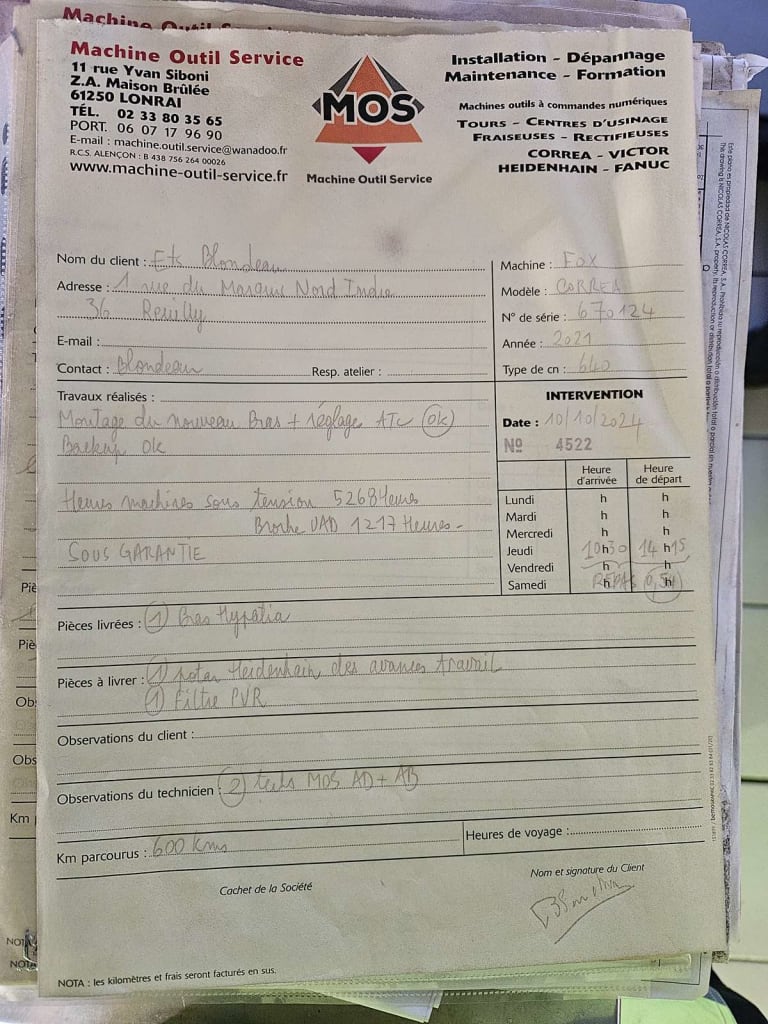 Machine Outil Service
Machine Outil Service
11 rue Yvan Siboni
Z.A. Maison Brûlée
61250 LONRAI
TÉL. 02 33 80 35 65
PORT. 06 07 17 96 90
E-mail : machine.outil.service@wanadoo.fr
R.C.S. ALENÇON : B 438 756 264 00026
www.machine-outil-service.fr
MOS
Machine Outil Service
Installation - Dépannage
Maintenance - Formation
Machines outils à commandes numériques
TOURS - CENTRES D'USINAGE
FRAISEUSES - RECTIFIEUSES
CORREA - VICTOR
HEIDENHAIN - FANUC
Nom du client : Ets Blondeau
Adresse : 1 rue du Marquis Nord Indre
36 Reuilly
E-mail :
Contact : Blondeau Resp. atelier :
Machine : FOX
Modèle : CORREA
N° de série : 670124
Année : 2021
Type de cn : 640
Travaux réalisés :
Montage du nouveau Bras + réglage ATC OK
Backup OK
Heures machines sous tension 5268 Heures
Broche UAD 1217 Heures -
SOUS GARANTIE
INTERVENTION
Date : 10/10/2024
Nº 4522
Heure d'arrivée
Heure de départ
Lundi h h
Mardi h h
Mercredi h h
Jeudi 10h30 14h15
Vendredi h h
Samedi REPAS 0,5h
Pièces livrées : 1 Bras Hypatia
Pièces à livrer : 1 potar Heidenhain des avances travail
1 Filtre PVR
Observations du client :
Observations du technicien : 2 techs MOS AD + AB
Km parcourus : 600 kms
Heures de voyage :
Cachet de la Société
Nom et signature du Client
NOTA : les kilomètres et frais seront facturés en sus.